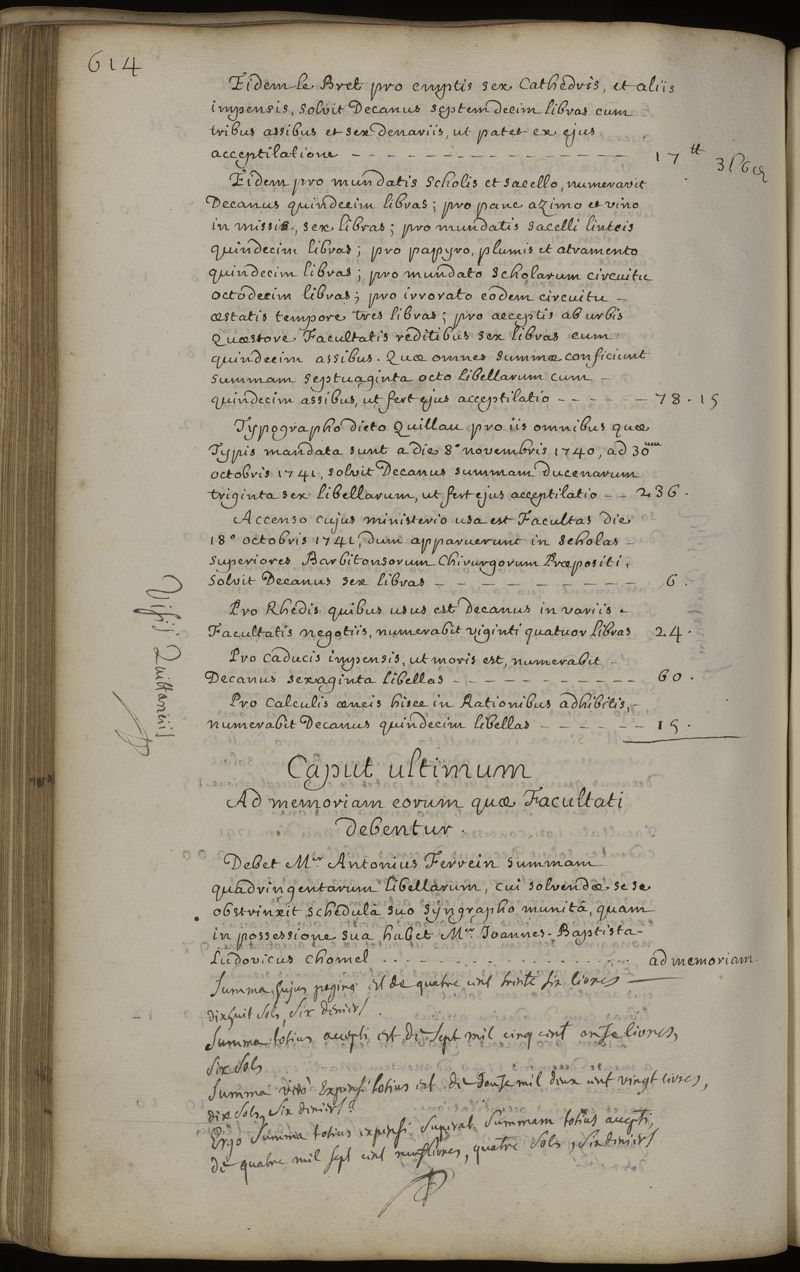 614
Eidem le Bret pro emptis sex Cathedris, et aliis
impensis, solvit Decanus septemdecim libras cum
tribus assibus et sex denariis, ut patet ex ejus
acceptilatione - - - - - - - - - - - - - - - - 17 tt 3 s 6 d
Eidem pro mundatis Scholis et sacello, numeravit
Decanus quindecim libras; pro pane azimo et vino
in missis, sex libras; pro mundatis sacelli linteis
quindecim libras; pro papyro, plumis et atramento
quindecim libras; pro mundato Scholarum circuitu
octodecim libras; pro irrorato eodem circuitu -
æstatis tempore tres libras; pro acceptis ab urbis
Quæstore Facultatis reditibus sex libras cum
quindecim assibus. Quæ omnes summæ conficiunt
summam septuaginta octo libellarum cum -
quindecim assibus, ut fert ejus acceptilatio - - - - - - 78 . 15
Typographo dicto Quillau pro iis omnibus quæ
Typis mandata sunt a die 8a novembris 1740, ad 30um
octobris 1741, solvit Decanus summam ducenarum
triginta sex libellarum, ut fert ejus acceptilatio - - 236 .
Accenso cujus ministerio usa est Facultas die
18a octobris 1741, dum apparuerunt in Scholas -
superiores Barbitonsorum Chirurgorum Præpositi,
solvit Decanus sex libras - - - - - - - - - - - 6 .
Pro Rhedis quibus usus est Decanus in variis -
Facultatis negotiis, numerabit viginti quatuor libras 24 .
Pro caducis impensis, ut moris est, numerabit -
Decanus sexaginta libellas - - - - - - - - - - 60 .
Pro Calculis æneis hisce in Rationibus adhibitis, -
numerabit Decanus quindecim libellas - - - - - - 15 .
Visis Quittanciis
Caput ultimum
Ad memoriam eorum quæ Facultati
debentur .
Debet Mer Antonius Ferrein summam
quadringentarum libellarum, cui solvendæ sese
obstrinxit schedulâ suo syngrapho munitâ, quam
in possessione sua habet Mer Joannes-Baptista-
Ludovicus Chomel . . . . . . . . . . . . . . . . ad memoriam
Summa hujus paginæ est de quatre cent trente six livres
dixhuit sols, six deniers .
Summa totius accepti est de sept mil cinq cent onze livres,
six sols
Summa vero Expensi totius est de douze mil deux cent vingt livres,
dix sols, six deniers.
Ergo Summa totius expensi superat Summam totius accepti,
de quatre mil sept cent neuf livres, quatre sols, six deniers